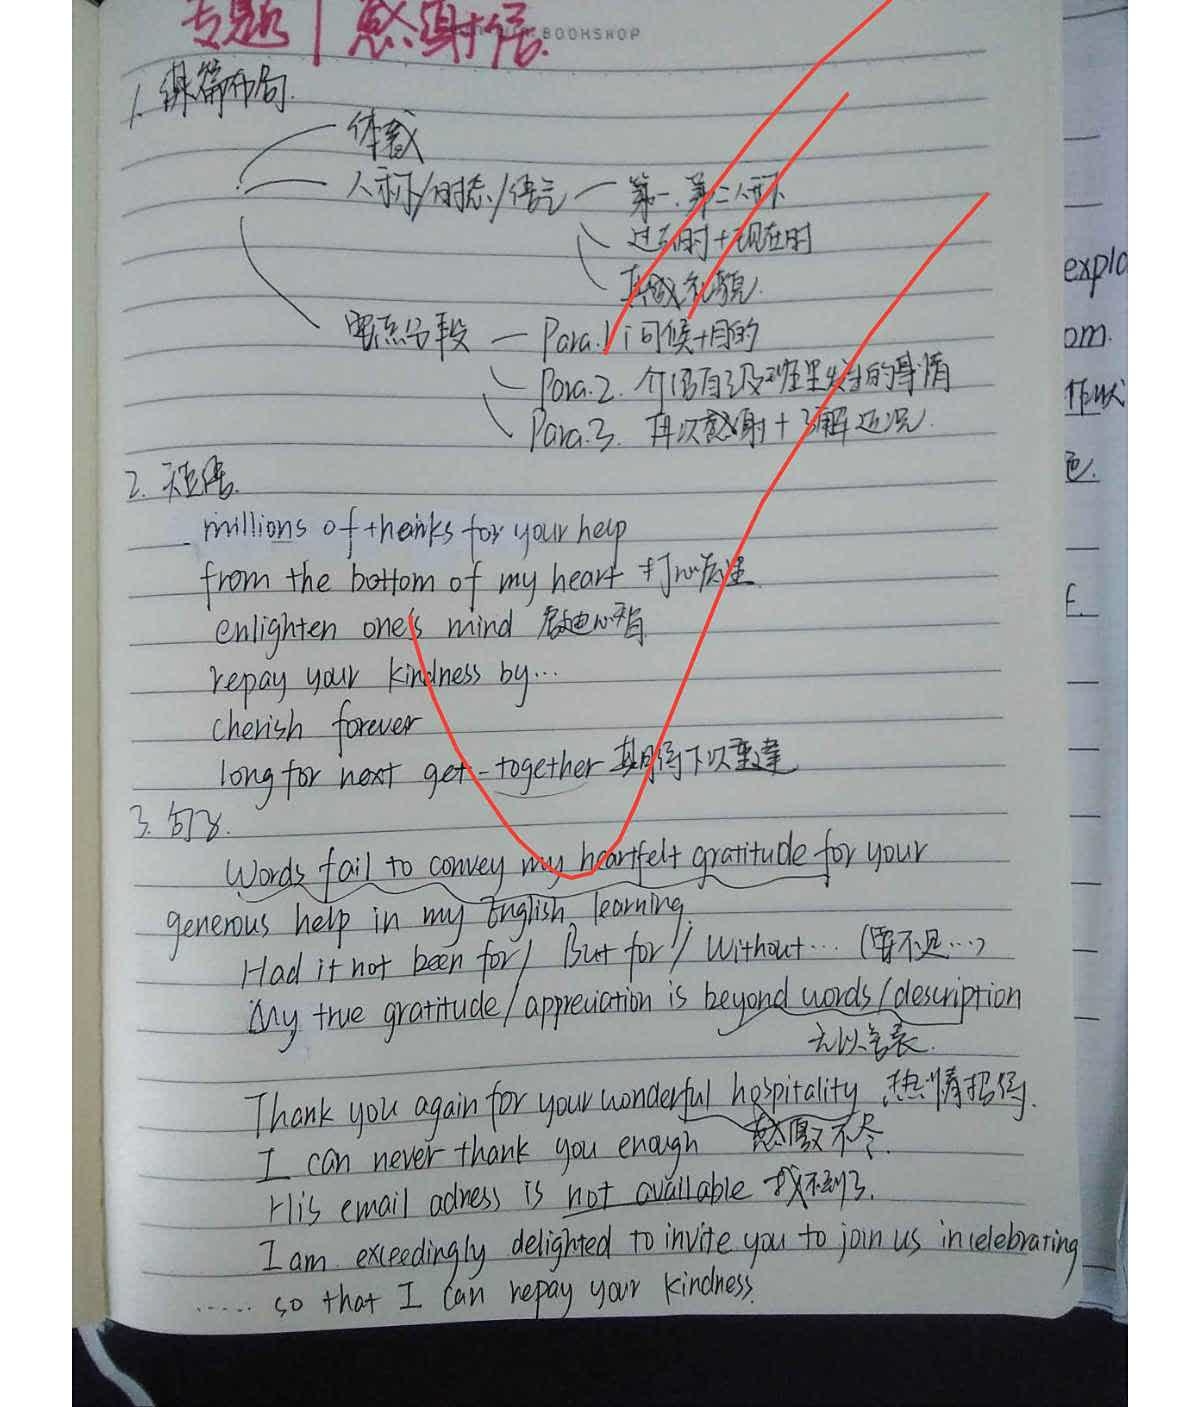 专题 | 感谢信.
BOOKSHOP
1. 谋篇布局.
体裁
人称/时态/语气 第一.第二人称
过去时+现在时
真诚礼貌.
要点分段 Para.1 问候+目的
Para.2. 介绍自己及班里发生的事情
Para.3. 再次感谢+了解近况.
2. 短语.
millions of thanks for your help
from the bottom of my heart 打心底里
enlighten one's mind 启迪心智
repay your kindness by...
cherish forever
long for next get-together 期待下次重逢
3. 句子.
Words fail to convey my heartfelt gratitude for your
generous help in my English learning.
Had it not been for / But for / Without... (要不是...)
My true gratitude/appreciation is beyond words/description
无以言表.
Thank you again for your wonderful hospitality 热情招待.
I can never thank you enough 感激不尽.
His email adress is not available 找不到了.
I am exceedingly delighted to invite you to join us in celebrating
...... so that I can repay your kindness.
explo
om.
作以
色.
f.